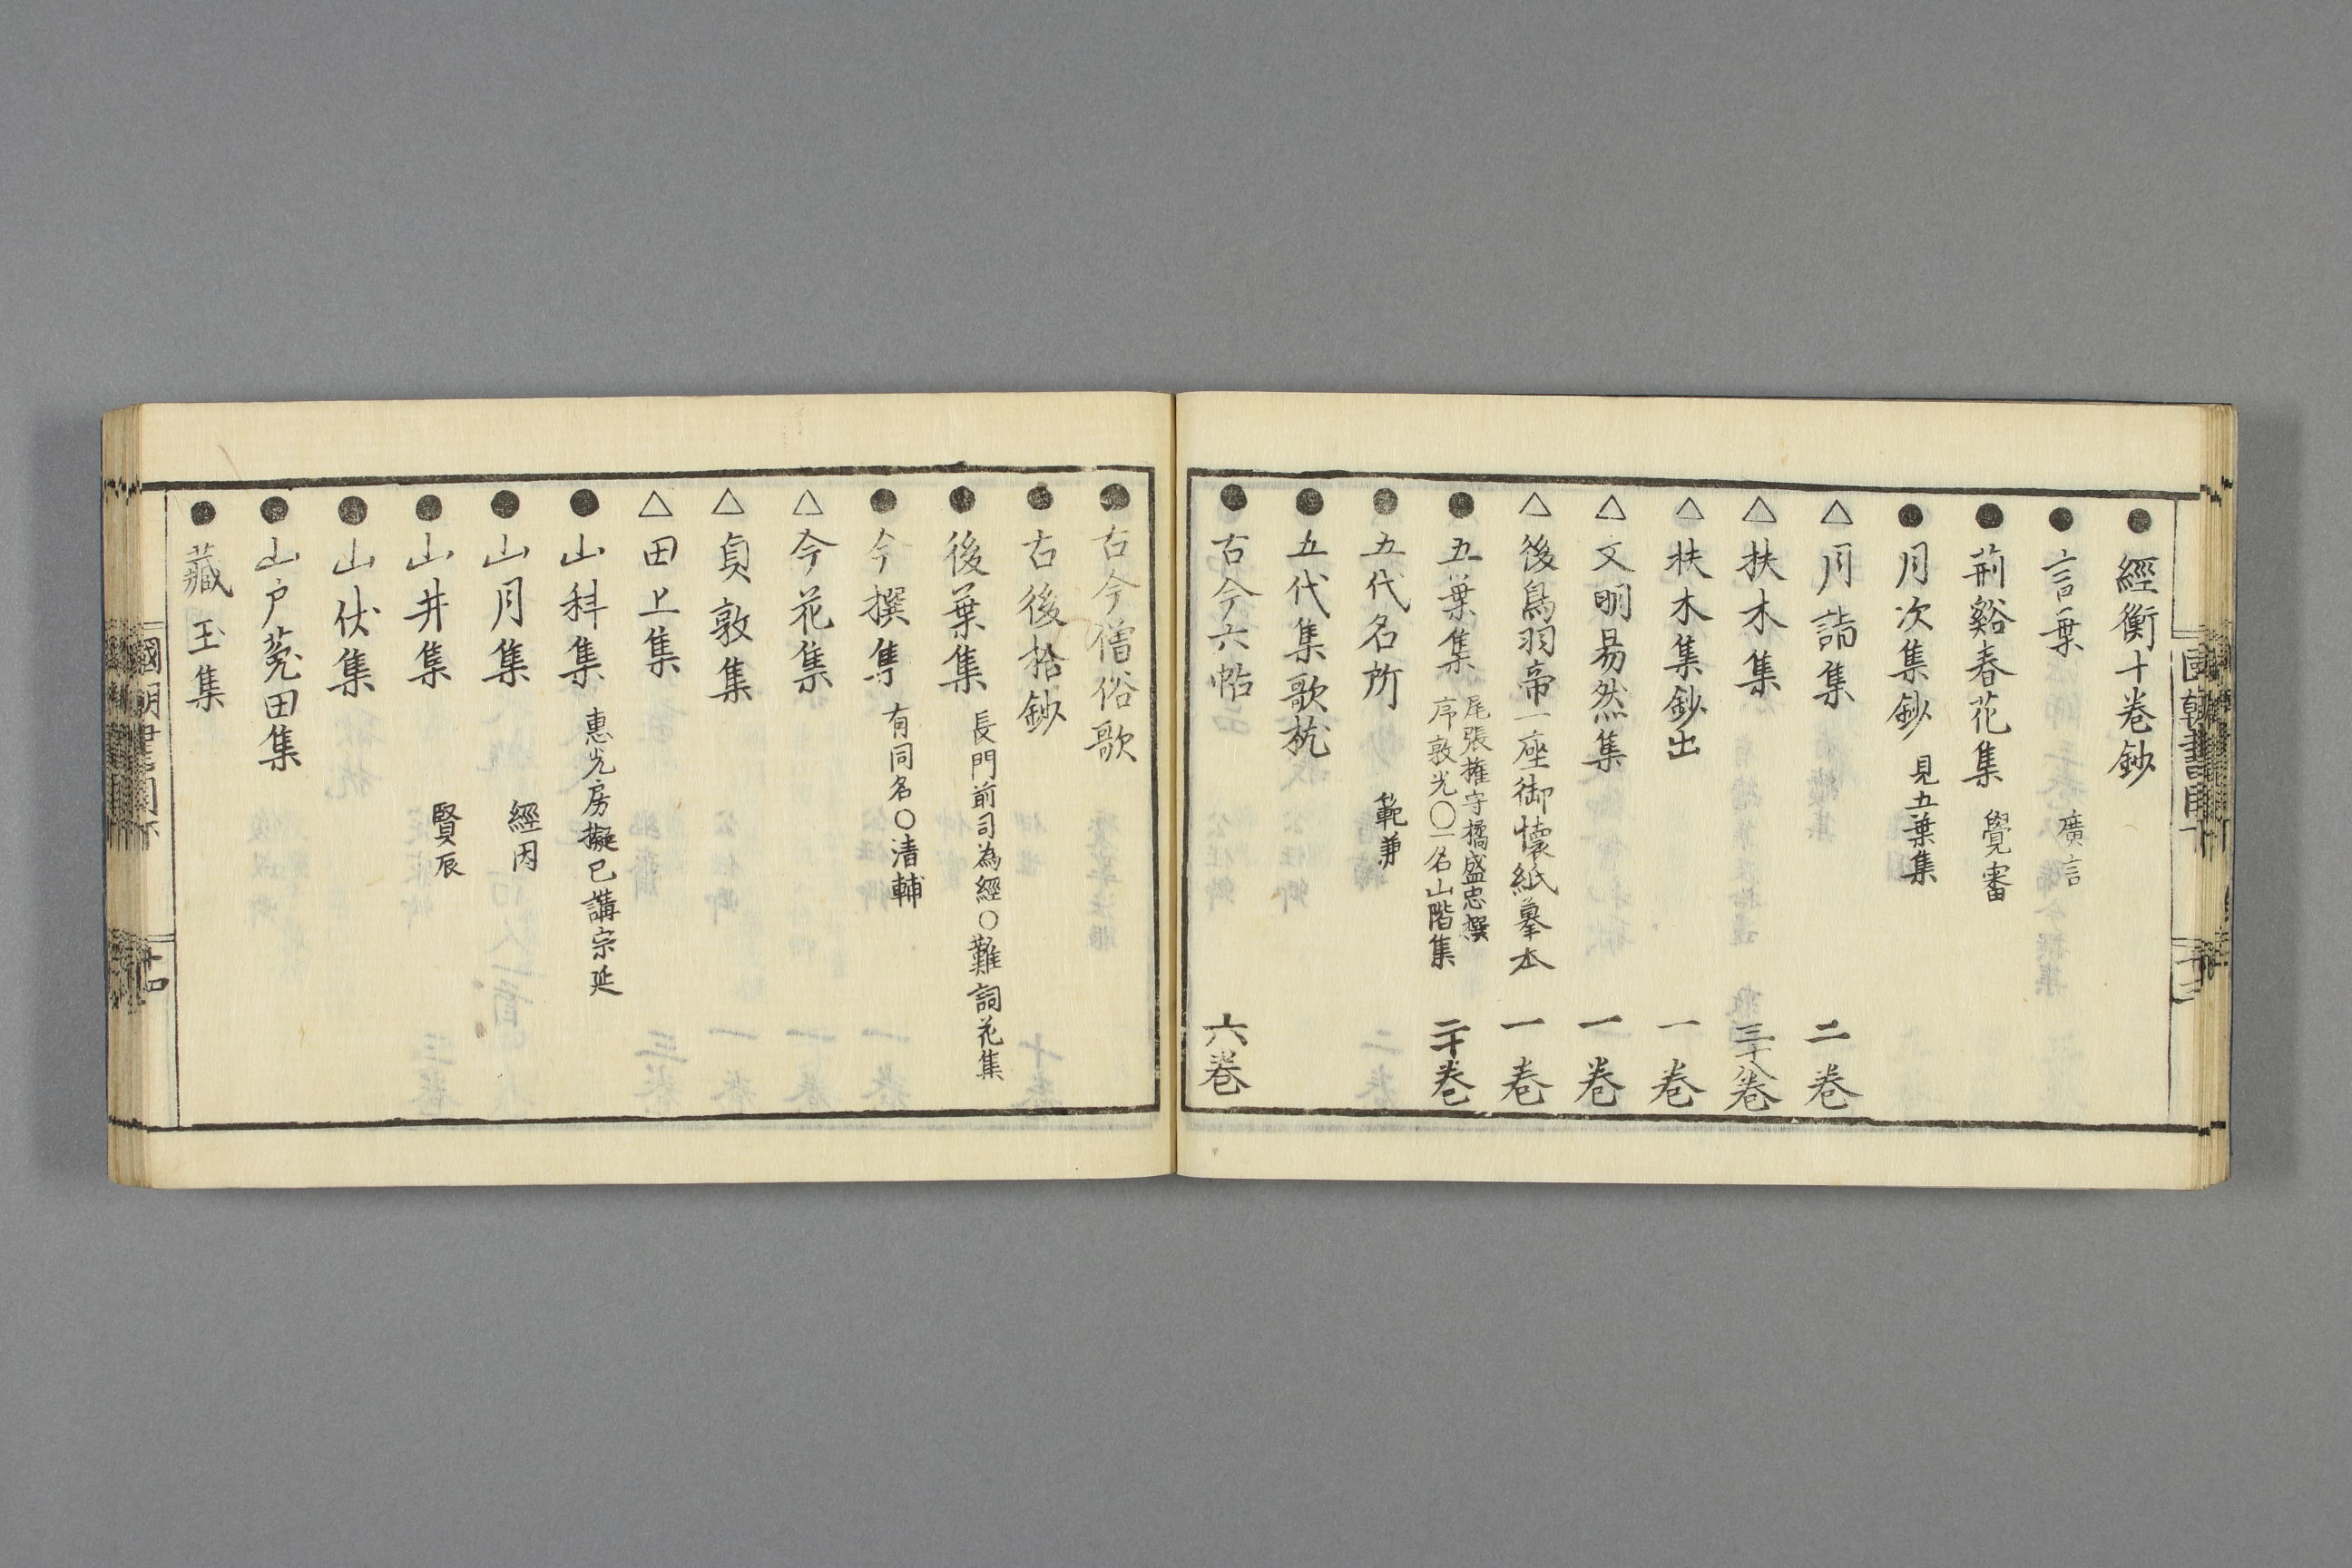 ●經衡十卷鈔
●言葉 廣言
●荊谿春花集 覺審
●月次集鈔 見五葉集
△月詣集 二卷
△扶木集 三十八卷
△扶木集鈔出 一卷
△文明易然集 一卷
△後鳥羽帝一座御懷紙摹本 一卷
●五葉集 尾張權守橘盛忠撰
序敦光〇一名山階集 二十卷
●五代名所 範兼
●五代集歌枕
●古今六帖 六卷
●古今僧俗歌
●古後拾鈔
●後葉集 長門前司為經〇難詞花集
●今撰集 有同名〇清輔
△今花集
△貞敦集
△田上集
●山科集 惠光房擬已講宗延
●山月集 經因
●山井集 賢辰
●山伏集
●山戶菟田集
●藏玉集